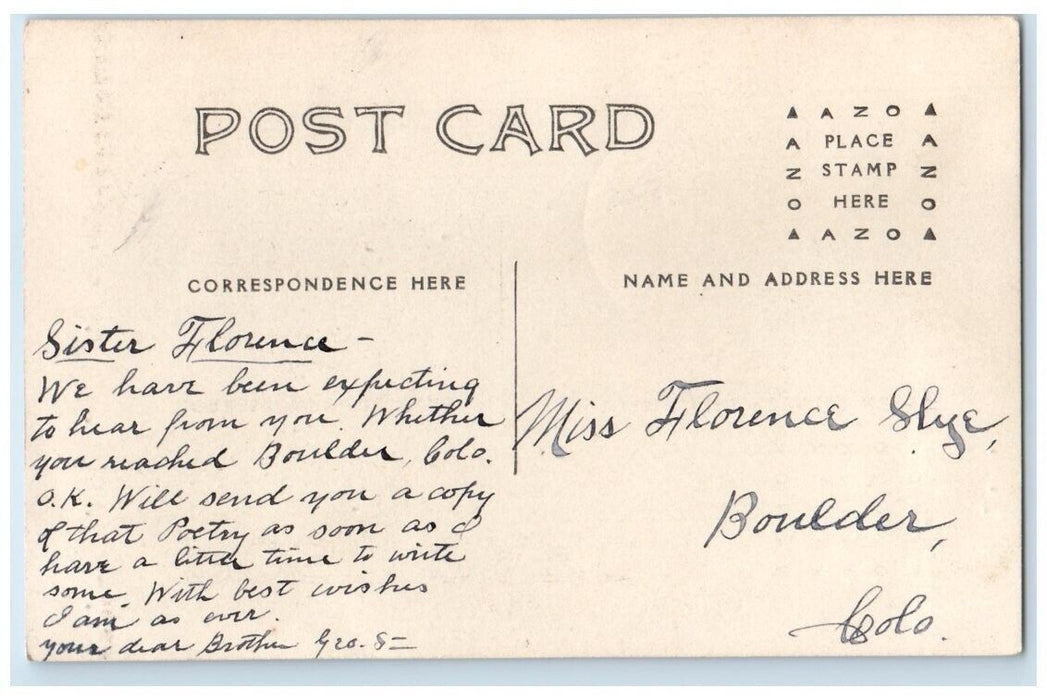 POST CARD
▲ A Z O ▲
A PLACE A
Z STAMP Z
O HERE O
▲ A Z O ▲
CORRESPONDENCE HERE
NAME AND ADDRESS HERE
Sister Florence -
We have been expecting
to hear from you. Whether
you reached Boulder, Colo.
O.K. Will send you a copy
of that Poetry as soon as I
have a little time to write
some. With best wishes
I am as ever.
your dear Brother Geo. S-
Miss Florence Slye,
Boulder,
Colo.